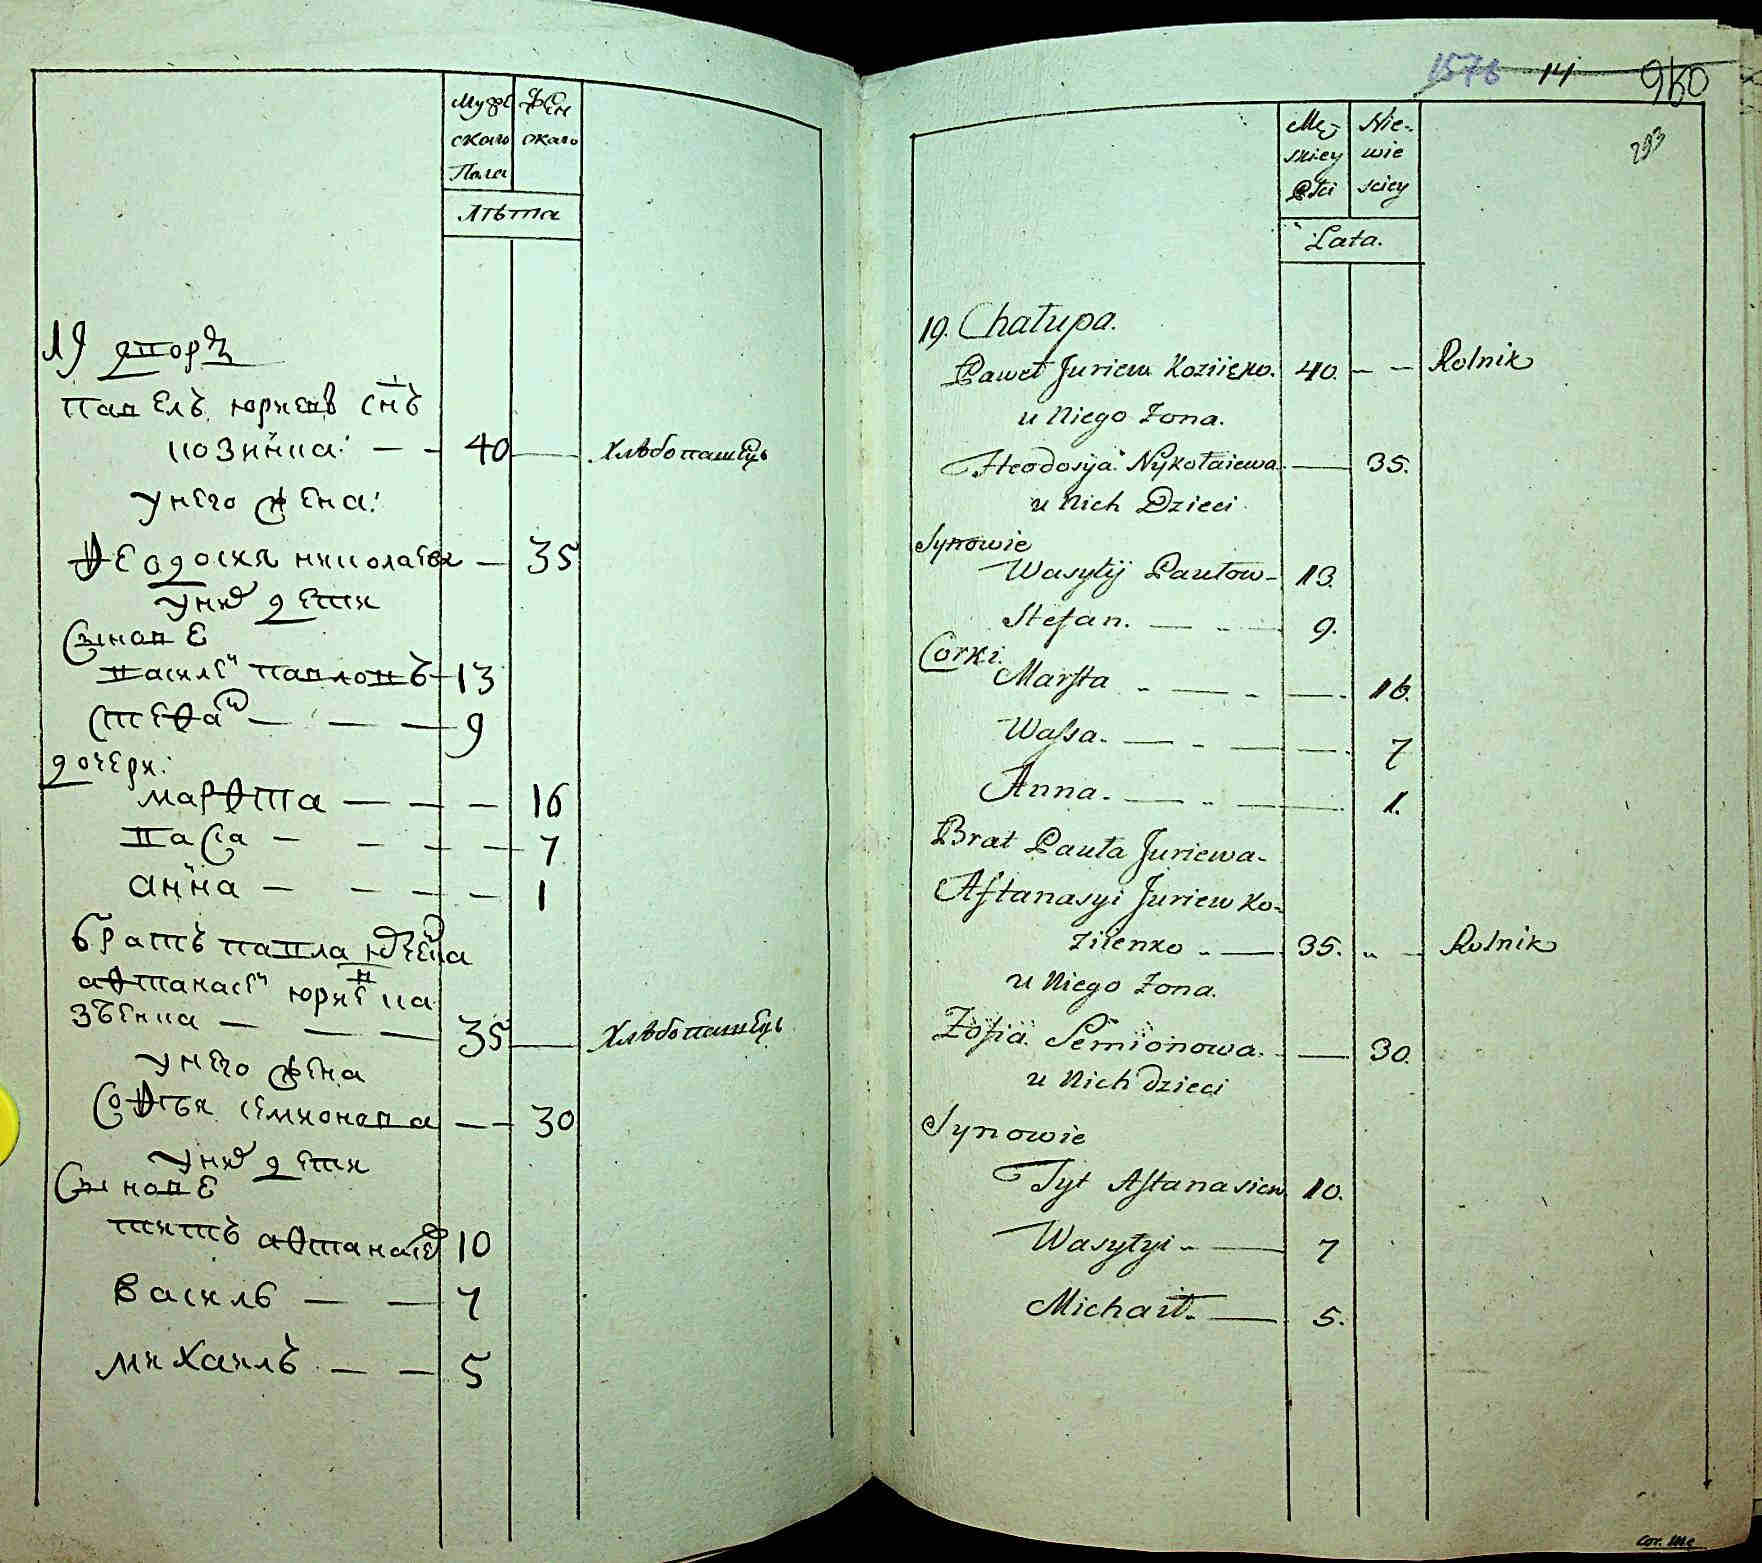 Мужескаго Пола
Женскаго
Лѣта
19 дворъ
павелъ юриевъ снъ
40
хлѣбопашецъ
у него жена:
Ѳеодосия николаева — 35
у них дети
Сынове
василей павловъ — 13
Стефан — — — 9
дочери:
марѳта — — — 16
васса — — — — 7
анна — — — — 1
братъ павла юриева
афтанасей юриев ко
зѣенка — — — 35 — хлѣбопашецъ
у него жена
Софья семионова — — 30
у них дети
Сынове
титъ афтанасиев 10
василь — — 7
михаилъ — — 5
1578 14 960
293
Męskiey Płci
Niewiesciey
Lata.
19. Chałupa.
Paweł Juriew Koziienko. 40. — — Rolnik
u Niego Zona.
Fteodosyia Nykołaiewa — 35.
u Nich Dzieci
Synowie
Wasylij Pautow — 13.
Stefan. — — 9.
Corki.
Marfta — — 16.
Wassa. — — — 7
Anna. — — — 1.
Brat Pauła Juriewa.
Aftanasyi Juriew Ko-
ziienko — 35. — Rolnik
u Niego Zona.
Zofia Semionowa. — 30.
u Nich dzieci
Synowie
Tyt Aftanasiew 10.
Wasylyi — 7
Michaił. — 5.